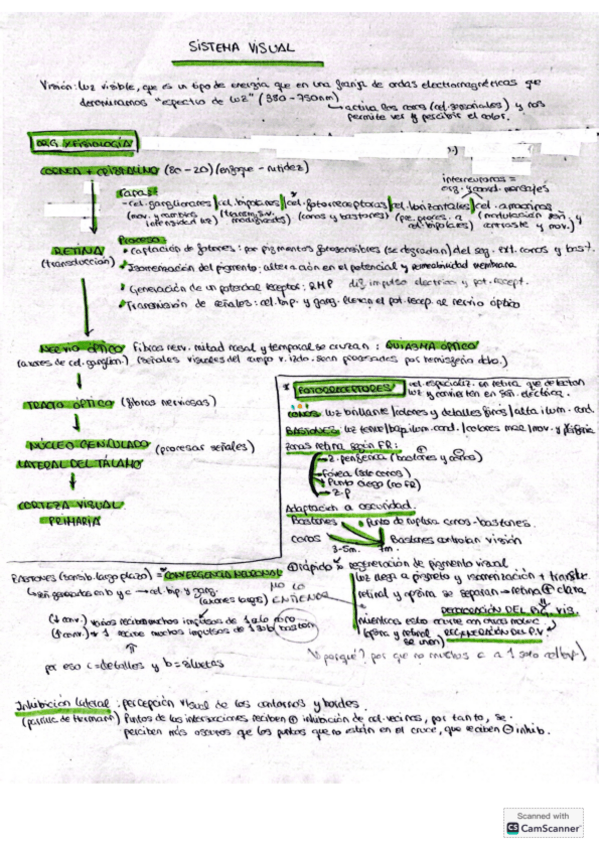 SISTEMA VISUAL
Visión: luz visible, que es un tipo de energía que en una franja de ondas electromagnéticas que
denominamos "espectro de luz" (380-750nm)
activa los conos (cel. sensoriales) y nos
permite ver y percibir el color.
ORG Y FISIOLOGÍA
CORNEA + CRISTALINO (80-20) (enfoque - nitidez)
interneuronas =
org. y cond. mensajes
Capas:
- cel. ganglionares / cel. bipolares / cel. fotorreceptoras / cel. horizontales / cel. amacrinas
(mov. y cambios intensidad luz) (conos y bastones) (modulación señ. y contraste y mov.)
RETINA
(transducción)
Proceso:
Captación de fotones: por pigmentos fotosensibles (se degradan) del seg. ext. conos y bast.
Isomerización del pigmento: alteración en el potencial y permeabilidad membrana
Generación de un potencial receptor: R.M.P dif. impulso eléctrico y pot. recept.
Transmisión de señales: cel. bip. y gang. llevan el pot. recep. al nervio óptico
NERVIO ÓPTICO Fibras nerv. mitad nasal y temporal se cruzan: QUIASMA ÓPTICO
(axones de cel. ganglion.) (señales visuales del campo v. izdo. serán procesadas por hemisferio dcho.)
TRACTO ÓPTICO (fibras nerviosas)
NÚCLEO GENICULADO (procesar señales)
LATERAL DEL TÁLAMO
CORTEZA VISUAL
PRIMARIA
* FOTORRECEPTORES cel. especializ. en retina que detectan
luz y convierten en señ. eléctrica.
CONOS luz brillante / colores y detalles finos / alta ilum. cond.
BASTONES luz tenue / baja ilum. cond. / mov. y periferia
Zonas retina según FR:
Z. periférica (bastones y conos)
Fóvea (solo conos)
Punto ciego (no FR)
Z.P
Adaptación a oscuridad.
Bastones Punto de ruptura conos-bastones.
conos Bastones controlan visión
3-5m. 7m.
BASTONES (sensib. largo plazo) = CONVERGENCIA NEURONAL
señ generadas en b y c → cel. bip. y gang.
(axones largos)
NO LO
ENTIENDO
1 recibe muchos impulsos de 1 solo bastón
por eso c=detalles y b=siluetas
rápido regeneración de pigmento visual
luz llega a pigmento e isomerización + transd.
retinal y opsina se separan → retina clara
PERCEPCIÓN DEL PIG. VIS.
mientras esto ocurre en
(opsina y retinal se unen) REGENERACIÓN DEL P.V
porqué? por que no muchos c a 1 sola cel bip.
Inhibición lateral: percepción visual de los contornos y bordes.
(parrilla de Hermann) Puntos de las intersecciones reciben + inhibición de cel. vecinas, por tanto, se
perciben más oscuros que los puntos que no están en el cruce, que reciben - inhib.
Scanned with
CS CamScanner